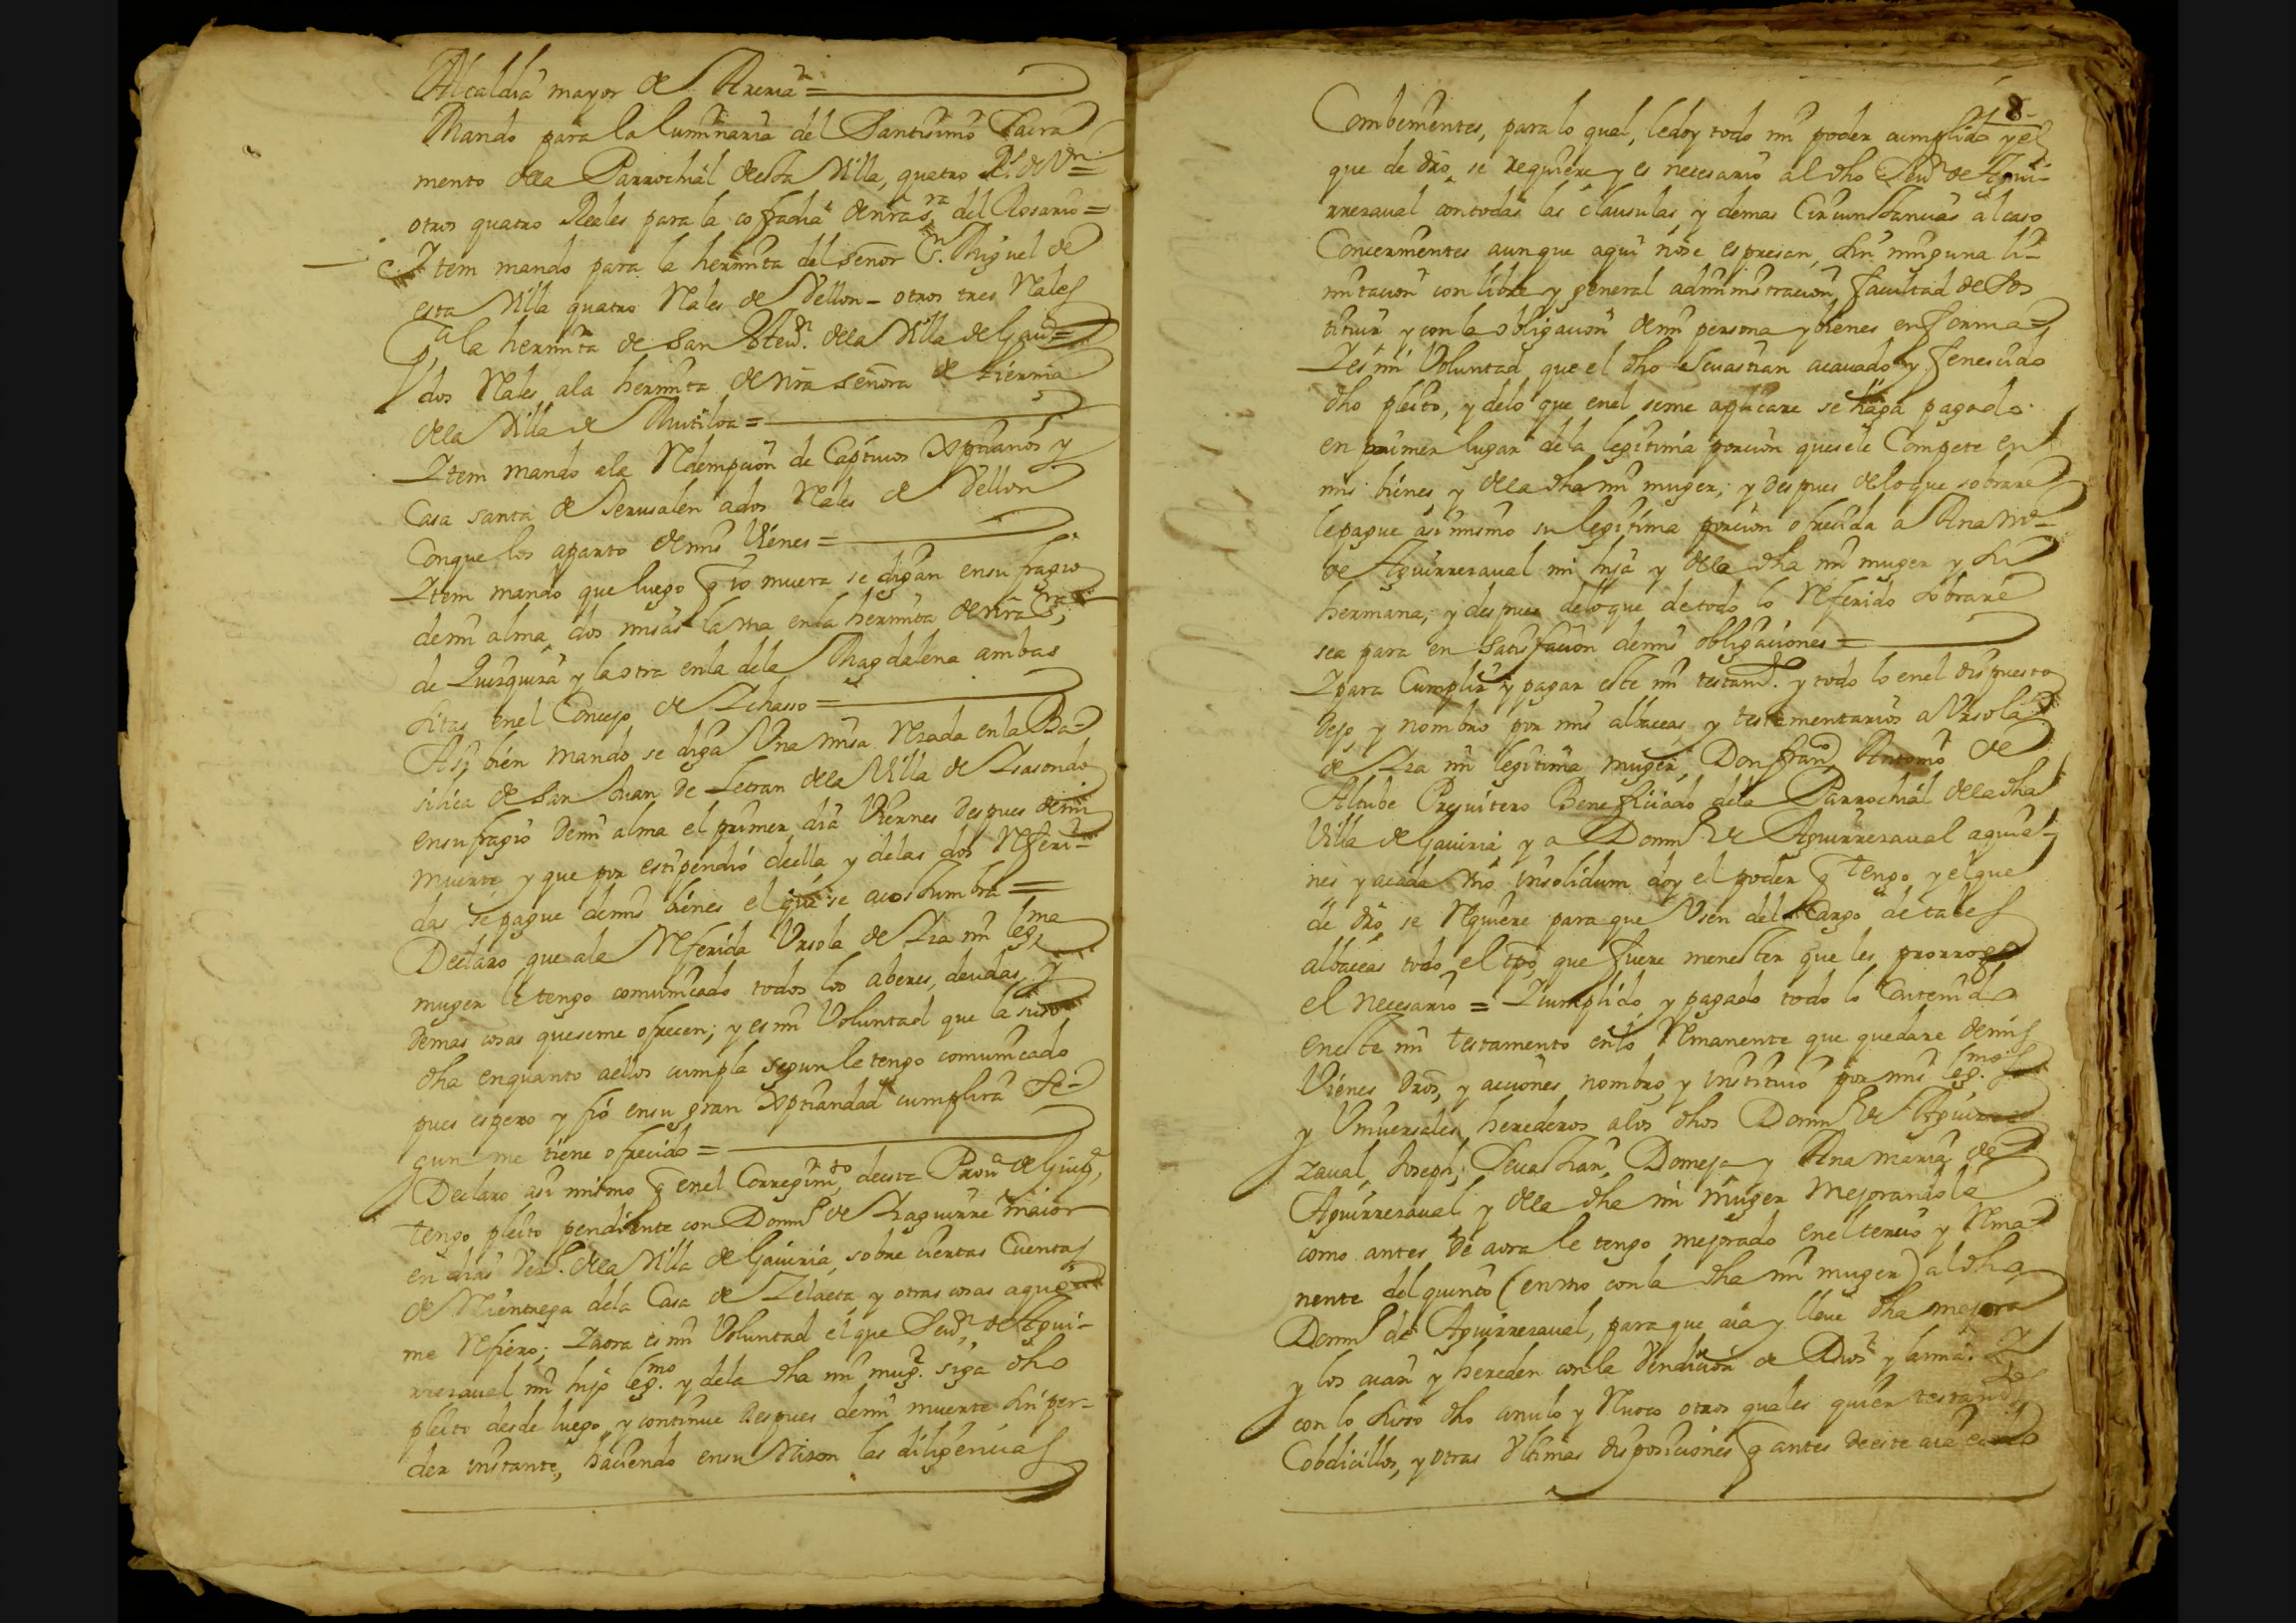 Alcaldia mayor de Areria =
Mando para la luminaria del Santisimo Sacra
mento dela Parrochial desta Villa, quatro Rs. de Vn =
otros quatro Reales para la cofradia de nra Sra del Rosario =
Ytem mando para la hermita del señor Sn. Miguel de
esta Villa quatro Rales de Vellon - otros tres Rales
a la hermita de San Estevn. dela Villa de Gavia =
dos Rales ala hermita de nra señora de Lierni
dela Villa de Mutiloa =
Ytem mando ala Redempcion de Captivos Xptianos y
Casa santa de Jerusalen ados Rales de Vellon
Conque los aparto demis Vienes =
Ytem mando que luego q yo muera se digan ensufragio
demi alma dos misas la vna enla hermita de nra Sra,
de Quizquiza y la otra enla dela Magdalena ambas
sitas enel Concejo de Ichasso =
Assi bien mando se diga Vna misa Rezada enla Ba
silica de San Juan de Letran dela Villa de Isasondo
ensufragio demi alma el primer dia Viernes despues demi
muerte, y que por estipendio de ella y delas dos Referi-
das se pague demis bienes el que se acostumbra =
Declaro que ala Referida Vrsola de Iza mi legma
muger le tengo comunicado todos los aberes, deudas, y
demas cosas queseme ofrecen; y es mi Voluntad que la suso
dha enquanto aellos cumpla segun le tengo comunicado
pues espero y fio ensu gran Xptiandad cumplira se-
gun me tiene ofrecido =
Declaro asi mismo q enel Corregimto desta Prova de Guipa,
tengo pleito pendiente con Doms de Izaguirre maior
en dias Vezo. dela Villa de Gaviria, sobre ciertas Cuentas
de Rientrega dela Casa de Zelaeta y otras cosas aque
me Refiero; Y aora es mi Voluntad el que Sevn de Agui-
rrezaval mi hijo legmo. y dela dha mi mugr. siga dho
pleito desde luego, y continue despues demi muerte sin per-
der instante, haciendo ensu Razon las diligencias
8
Combenientes, para lo qual, ledoy todo mi poder cumplido y el
que de dro se requiere y es necesario al dho Sevn de Agui-
rrezaval contodas las clausulas y demas Circunstancias al caso
Concernientes aunque aqui nose espresan, sin ninguna li-
mitacion con libre y general administracion facultad de sos
tituir y con la obligacion demi persona y bienes en forma =
Y es mi Voluntad que el dho Sevastian acavado y fenescido
dho pleito, y delo que enel seme aplicare se haga pagado
en primer lugar dela legitima porcion quesele Compete en
mis bienes y dela dha mi muger; y despues delo que sobrare
le pague asimismo su legitima porcion ofrecida a Ana Ma
de Aguirrezaval mi hija y dela dha mi muger y su
hermana; y despues delo que detodo lo Referido sobrare
sea para en satisfacion demis obligaciones =
Y para Cumplir y pagar este mi testamto. y todo lo enel dispuesto
dejo y nombro por mis albaceas y testementarios a Vrsola
de Iza mi legitima muger, Don Franco Antonio de
Altube Presvitero Beneficiado dela Parrochial dela dha
Villa de Gaviria y a Doms de Aguirrezaval aquie-
nes y acada vno insolidum doy el poder q tengo, y el que
de dro se Requiere para que Vsen del Cargo de tales
albaceas todo el tpo que fuere menester que les prorrogo
el necesario = Y cumplido y pagado todo lo Contenido
eneste mi testamento enlo Remanente que quedare demis
Vienes dros, y acciones nombro, y instituio por mis legmos
y Vniversales herederos alos dhos Doms de Aguirre
zaval, Joseph, Sevastian, Domeja y Ana maria de
Aguirrezaval, y dela dha mi muger mejorandole
como antes de aora le tengo mejorado enel tercio y Rema
nente del quinto (en vno con la dha mi muger) al dho
Doms de Aguirrezaval, para que aia y lleve dha mejora
y los aian y hereden con la Vendicion de Dios y la mia. Y
con lo suso dho anulo y Revoco otros quales quier testamtos
Cobdicillos, y otras Vltimas disposiciones q antes de este aia echo